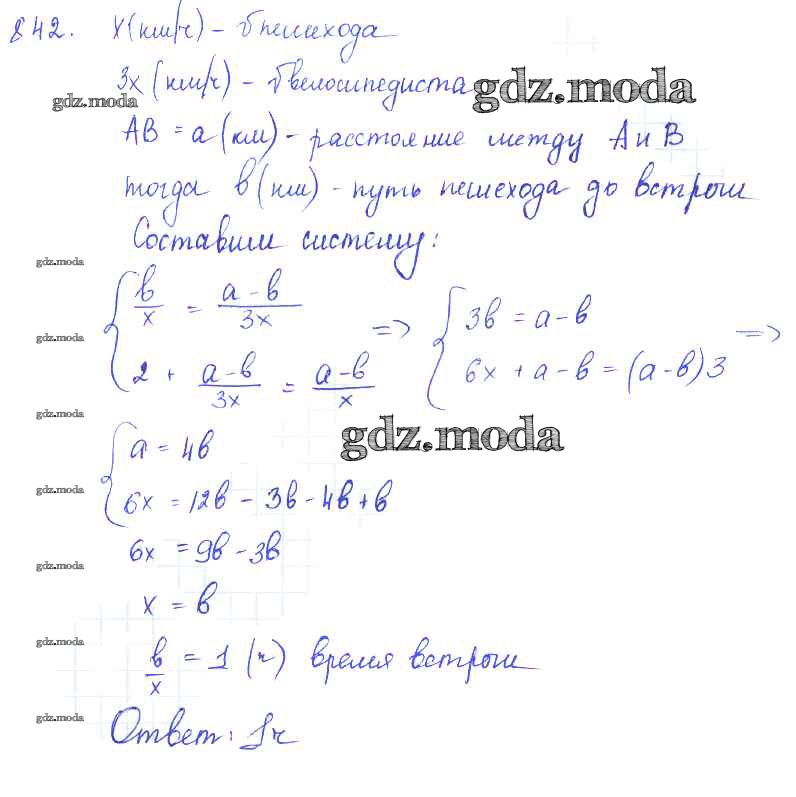 842. х(км/ч) – υ пешехода
3х (км/ч) – υ велосипедиста
gdz.moda
gdz.moda
АВ = а (км) – расстояние между А и В
тогда в (км) – путь пешехода до встречи
Составим систему:
gdz.moda
{ в/х = (а – в)/3х => { 3в = а – в =>
gdz.moda
2 + (а – в)/3х = (а – в)/х 6х + а – в = (а – в)3
gdz.moda
gdz.moda
{ а = 4в
gdz.moda
6х = 12в – 3в – 4в + в
6х = 9в – 3в
gdz.moda
х = в
gdz.moda
в/х = 1 (ч) время встречи
gdz.moda
Ответ: 1ч